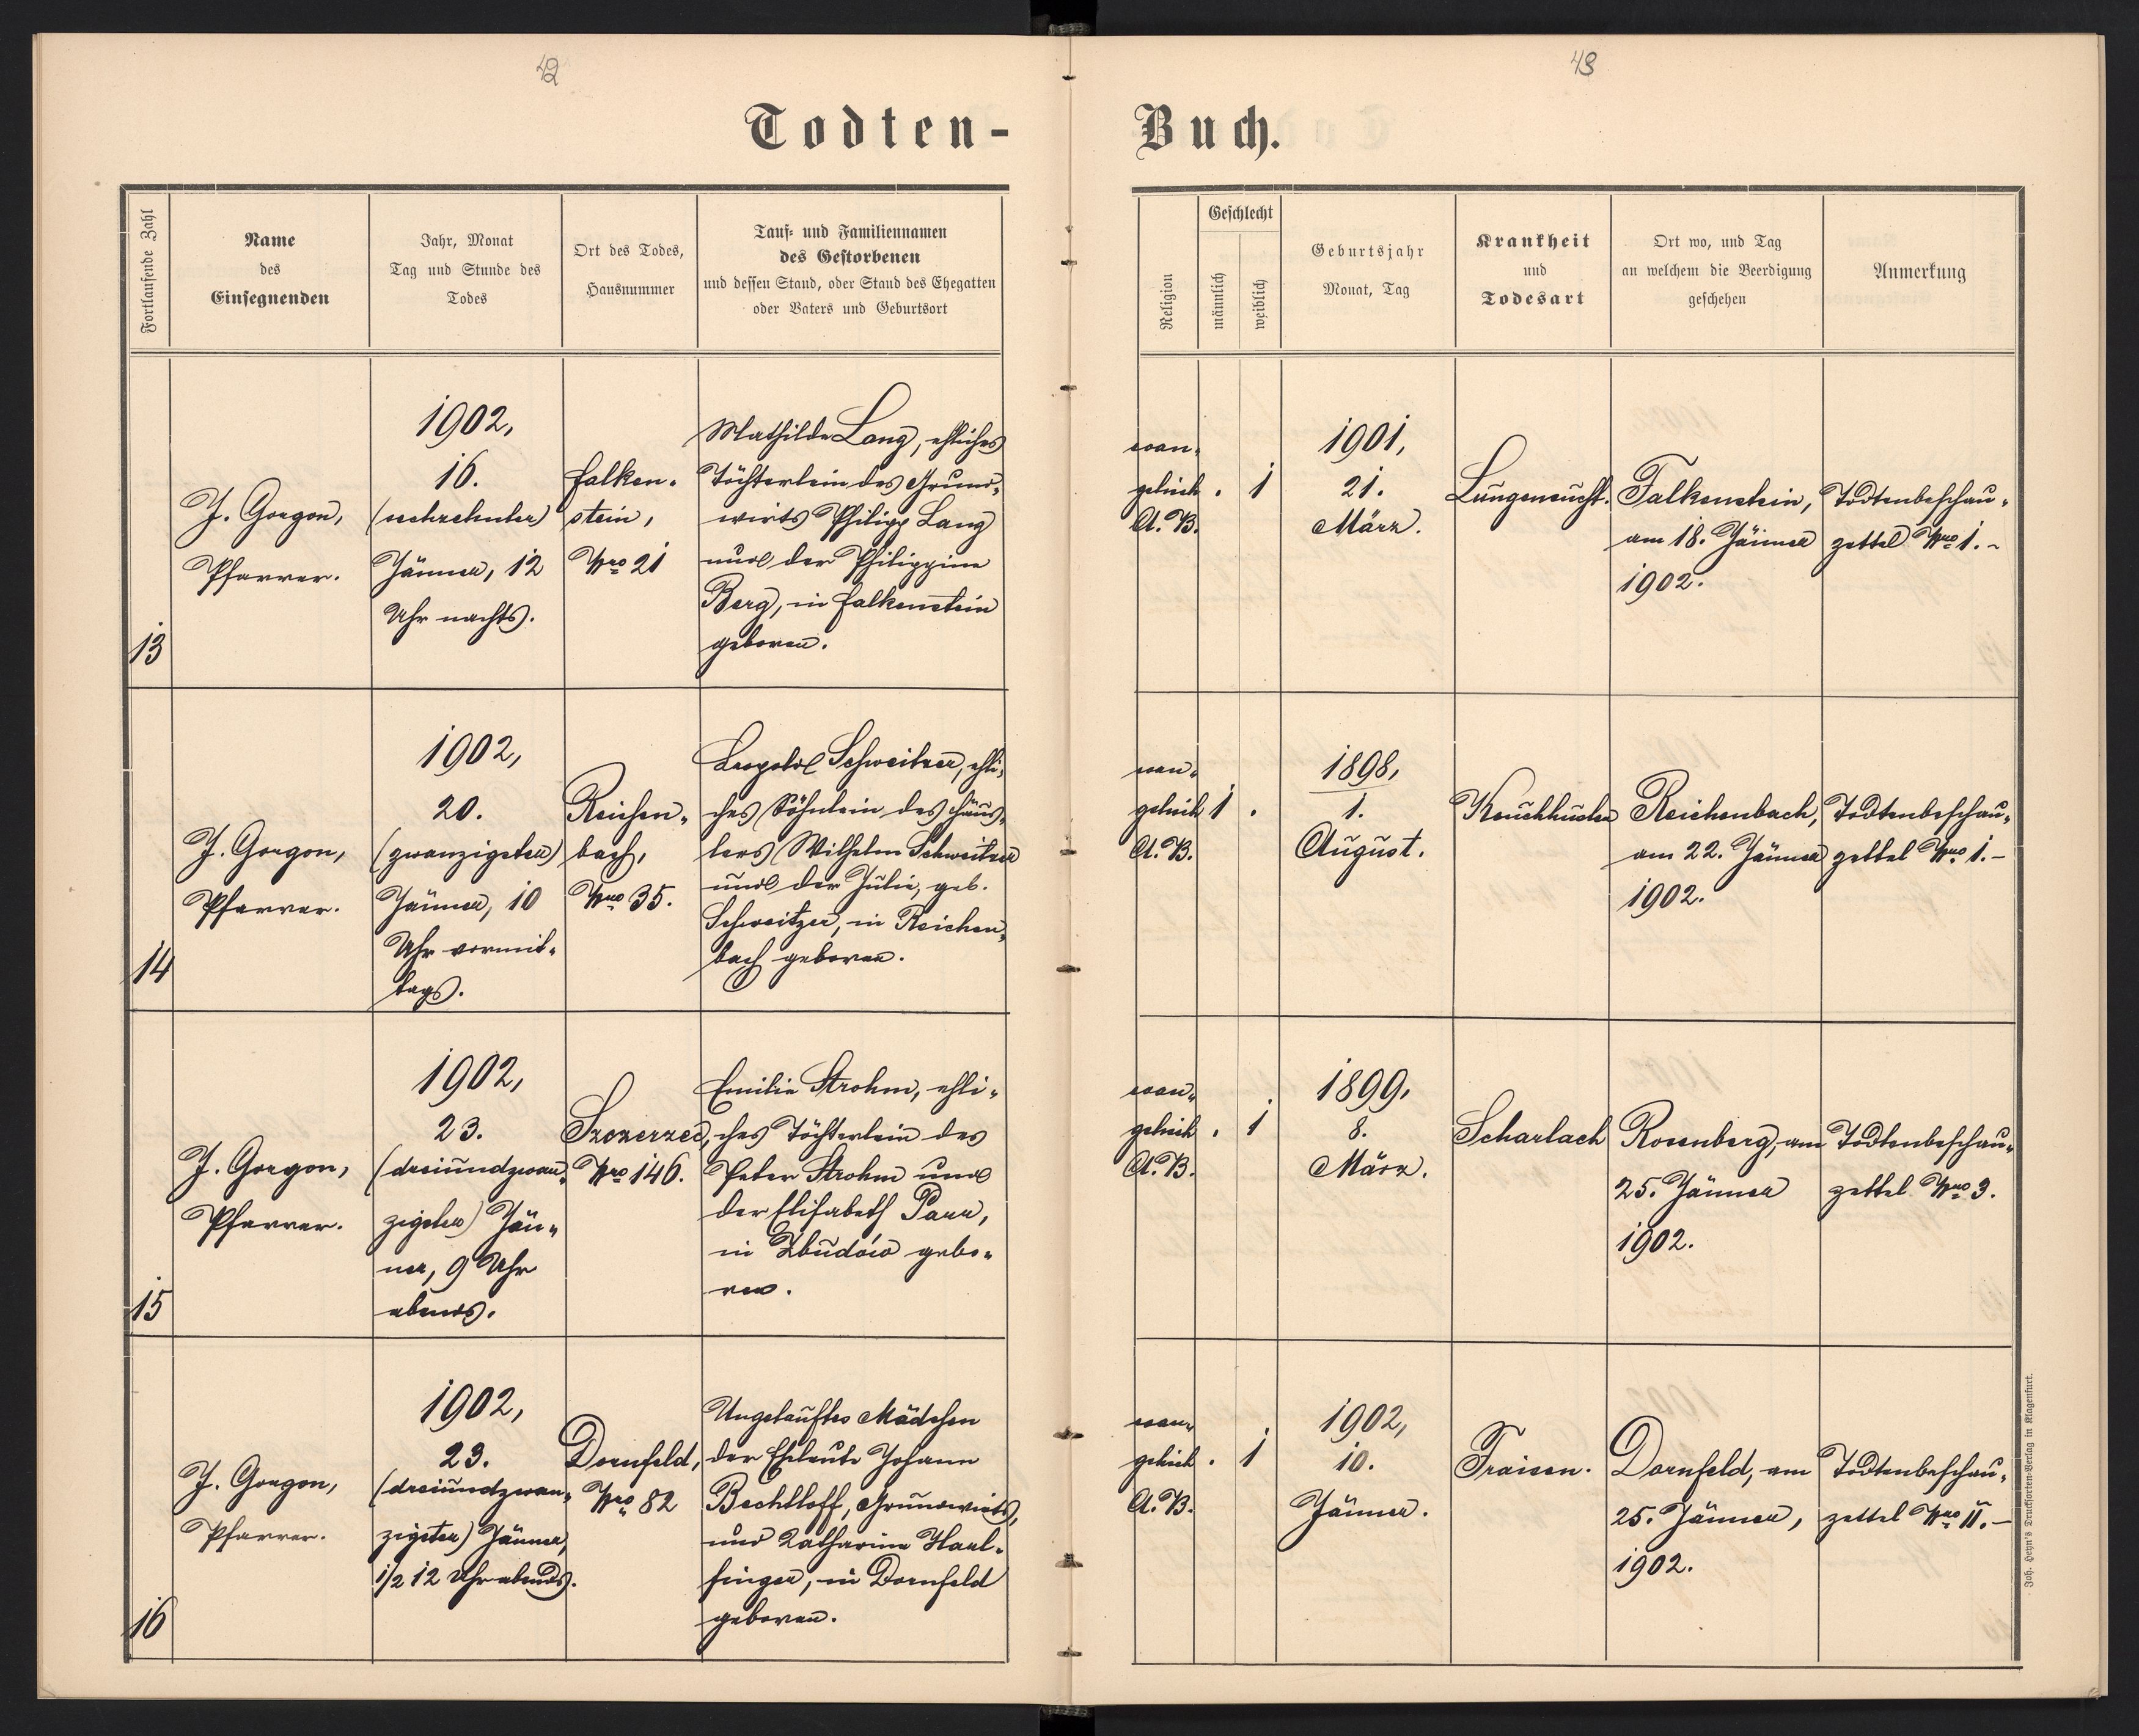 42
43
Todten-
Buch.
Fortlaufende Zahl
Name
des
Einsegnenden
Jahr, Monat
Tag und Stunde des
Todes
Ort des Todes,
Hausnummer
Tauf- und Familiennamen
des Gestorbenen
und dessen Stand, oder Stand des Ehegatten
oder Vaters und Geburtsort
Religion
Geschlecht
männlich
weiblich
Geburtsjahr
Monat, Tag
Krankheit
und
Todesart
Ort wo, und Tag
an welchem die Beerdigung
geschehen
Anmerkung
13
J. Gorgon,
Pfarrer.
1902,
16.
(sechzehnter)
Jänner, 12
Uhr nachts.
Falken-
stein,
Nro 21
Mathilde Lang, ehliches
Töchterlein des Grund-
wirts Philipp Lang
und der Philippine
Berg, in Falkenstein
geboren.
evan-
gelisch
A. B.
.
1
1901,
21.
März.
Lungensucht.
Falkenstein,
am 18. Jänner
1902.
Todtenbeschau-
zettel Nro 1.-
14
J. Gorgon,
Pfarrer.
1902,
20.
(zwanzigsten)
Jänner, 10
Uhr vormit-
tags.
Reichen-
bach,
Nro 35.
Leopold Schweitzer, ehli-
ches Söhnlein des Häus-
lers Wilhelm Schweitzer
und der Julie, geb.
Schweitzer, in Reichen-
bach geboren.
evan-
gelisch
A. B.
1
.
1898,
1.
August.
Keuchhusten
Reichenbach,
am 22. Jänner
1902.
Todtenbeschau-
zettel Nro 1.-
15
J. Gorgon,
Pfarrer.
1902,
23.
(dreiundzwan-
zigster) Jän-
ner, 9 Uhr
abends.
Szczerzec,
Nro 146.
Emilie Strohm, ehli-
ches Töchterlein des
Peter Strohm und
der Elisabeth Parr,
in Zbudów gebo-
ren.
evan-
gelisch
A. B.
.
1
1899,
8.
März.
Scharlach
Rosenberg, am
25. Jänner
1902.
Todtenbeschau-
zettel Nro 3.
16
J. Gorgon,
Pfarrer.
1902,
23.
(dreiundzwan-
zigster) Jänner,
1/2 12 Uhr abends.
Dornfeld,
Nro 82
Ungetauftes Mädchen
der Eheleute Johann
Bechtloff, Grundwirts,
und Katharine Harl-
finger, in Dornfeld
geboren.
evan-
gelisch
A. B.
.
1
1902,
10.
Jänner.
Fraisen.
Dornfeld, am
25. Jänner,
1902.
Todtenbeschau-
zettel Nro II.-
Joh. Heyn's Drucksorten-Verlag in Klagenfurt.